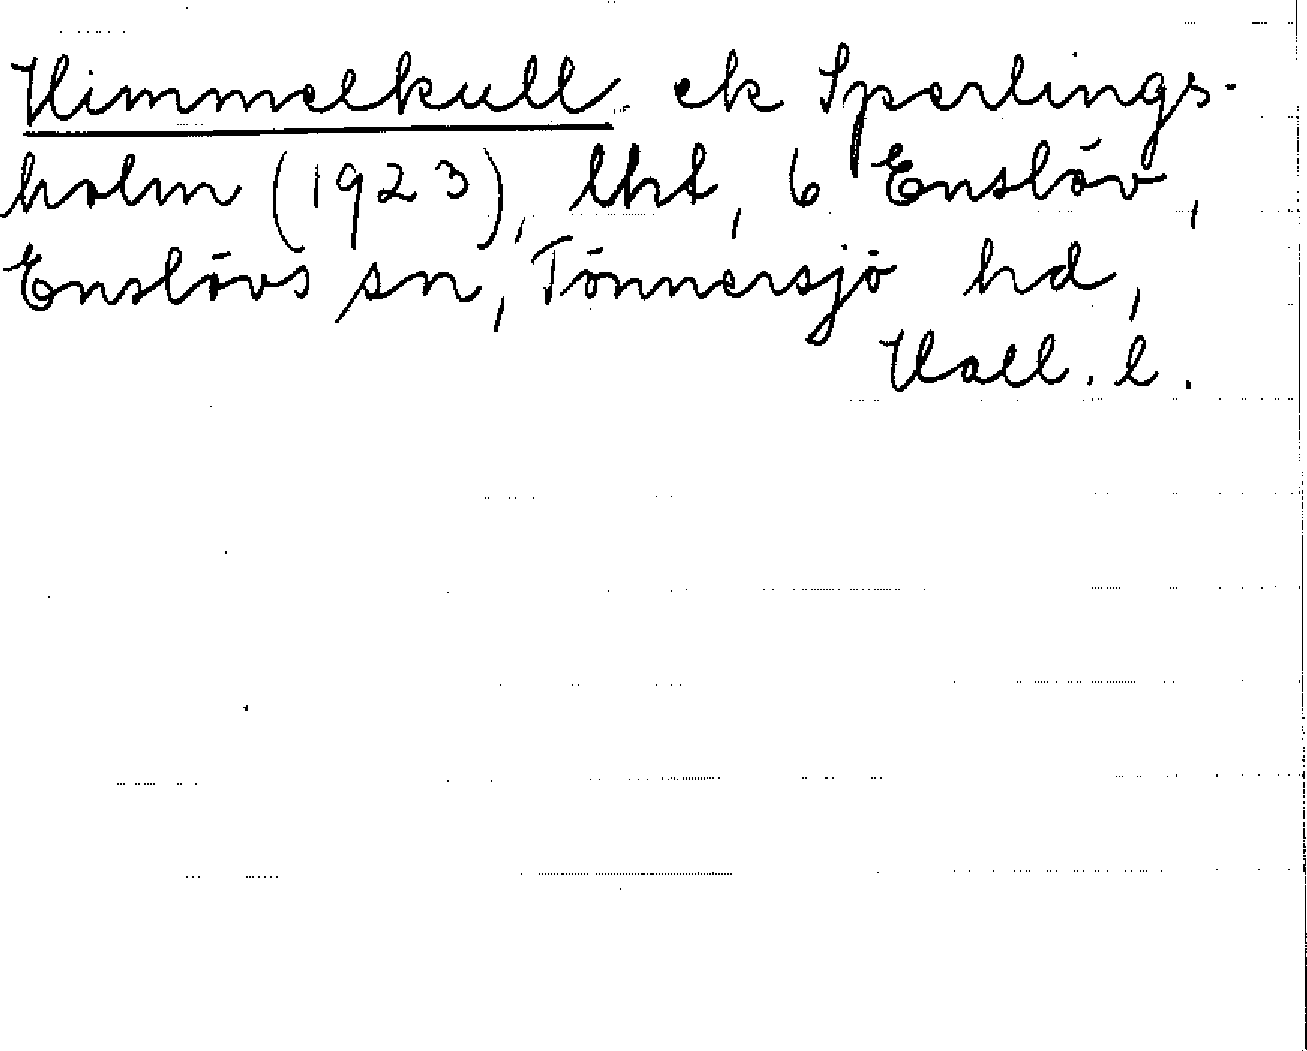 Himmelkull ek Sperlings-
holm (1923), lht, 6 Enslöv,
Enslövs sn, Tönnersjö hd,
Hall. l.